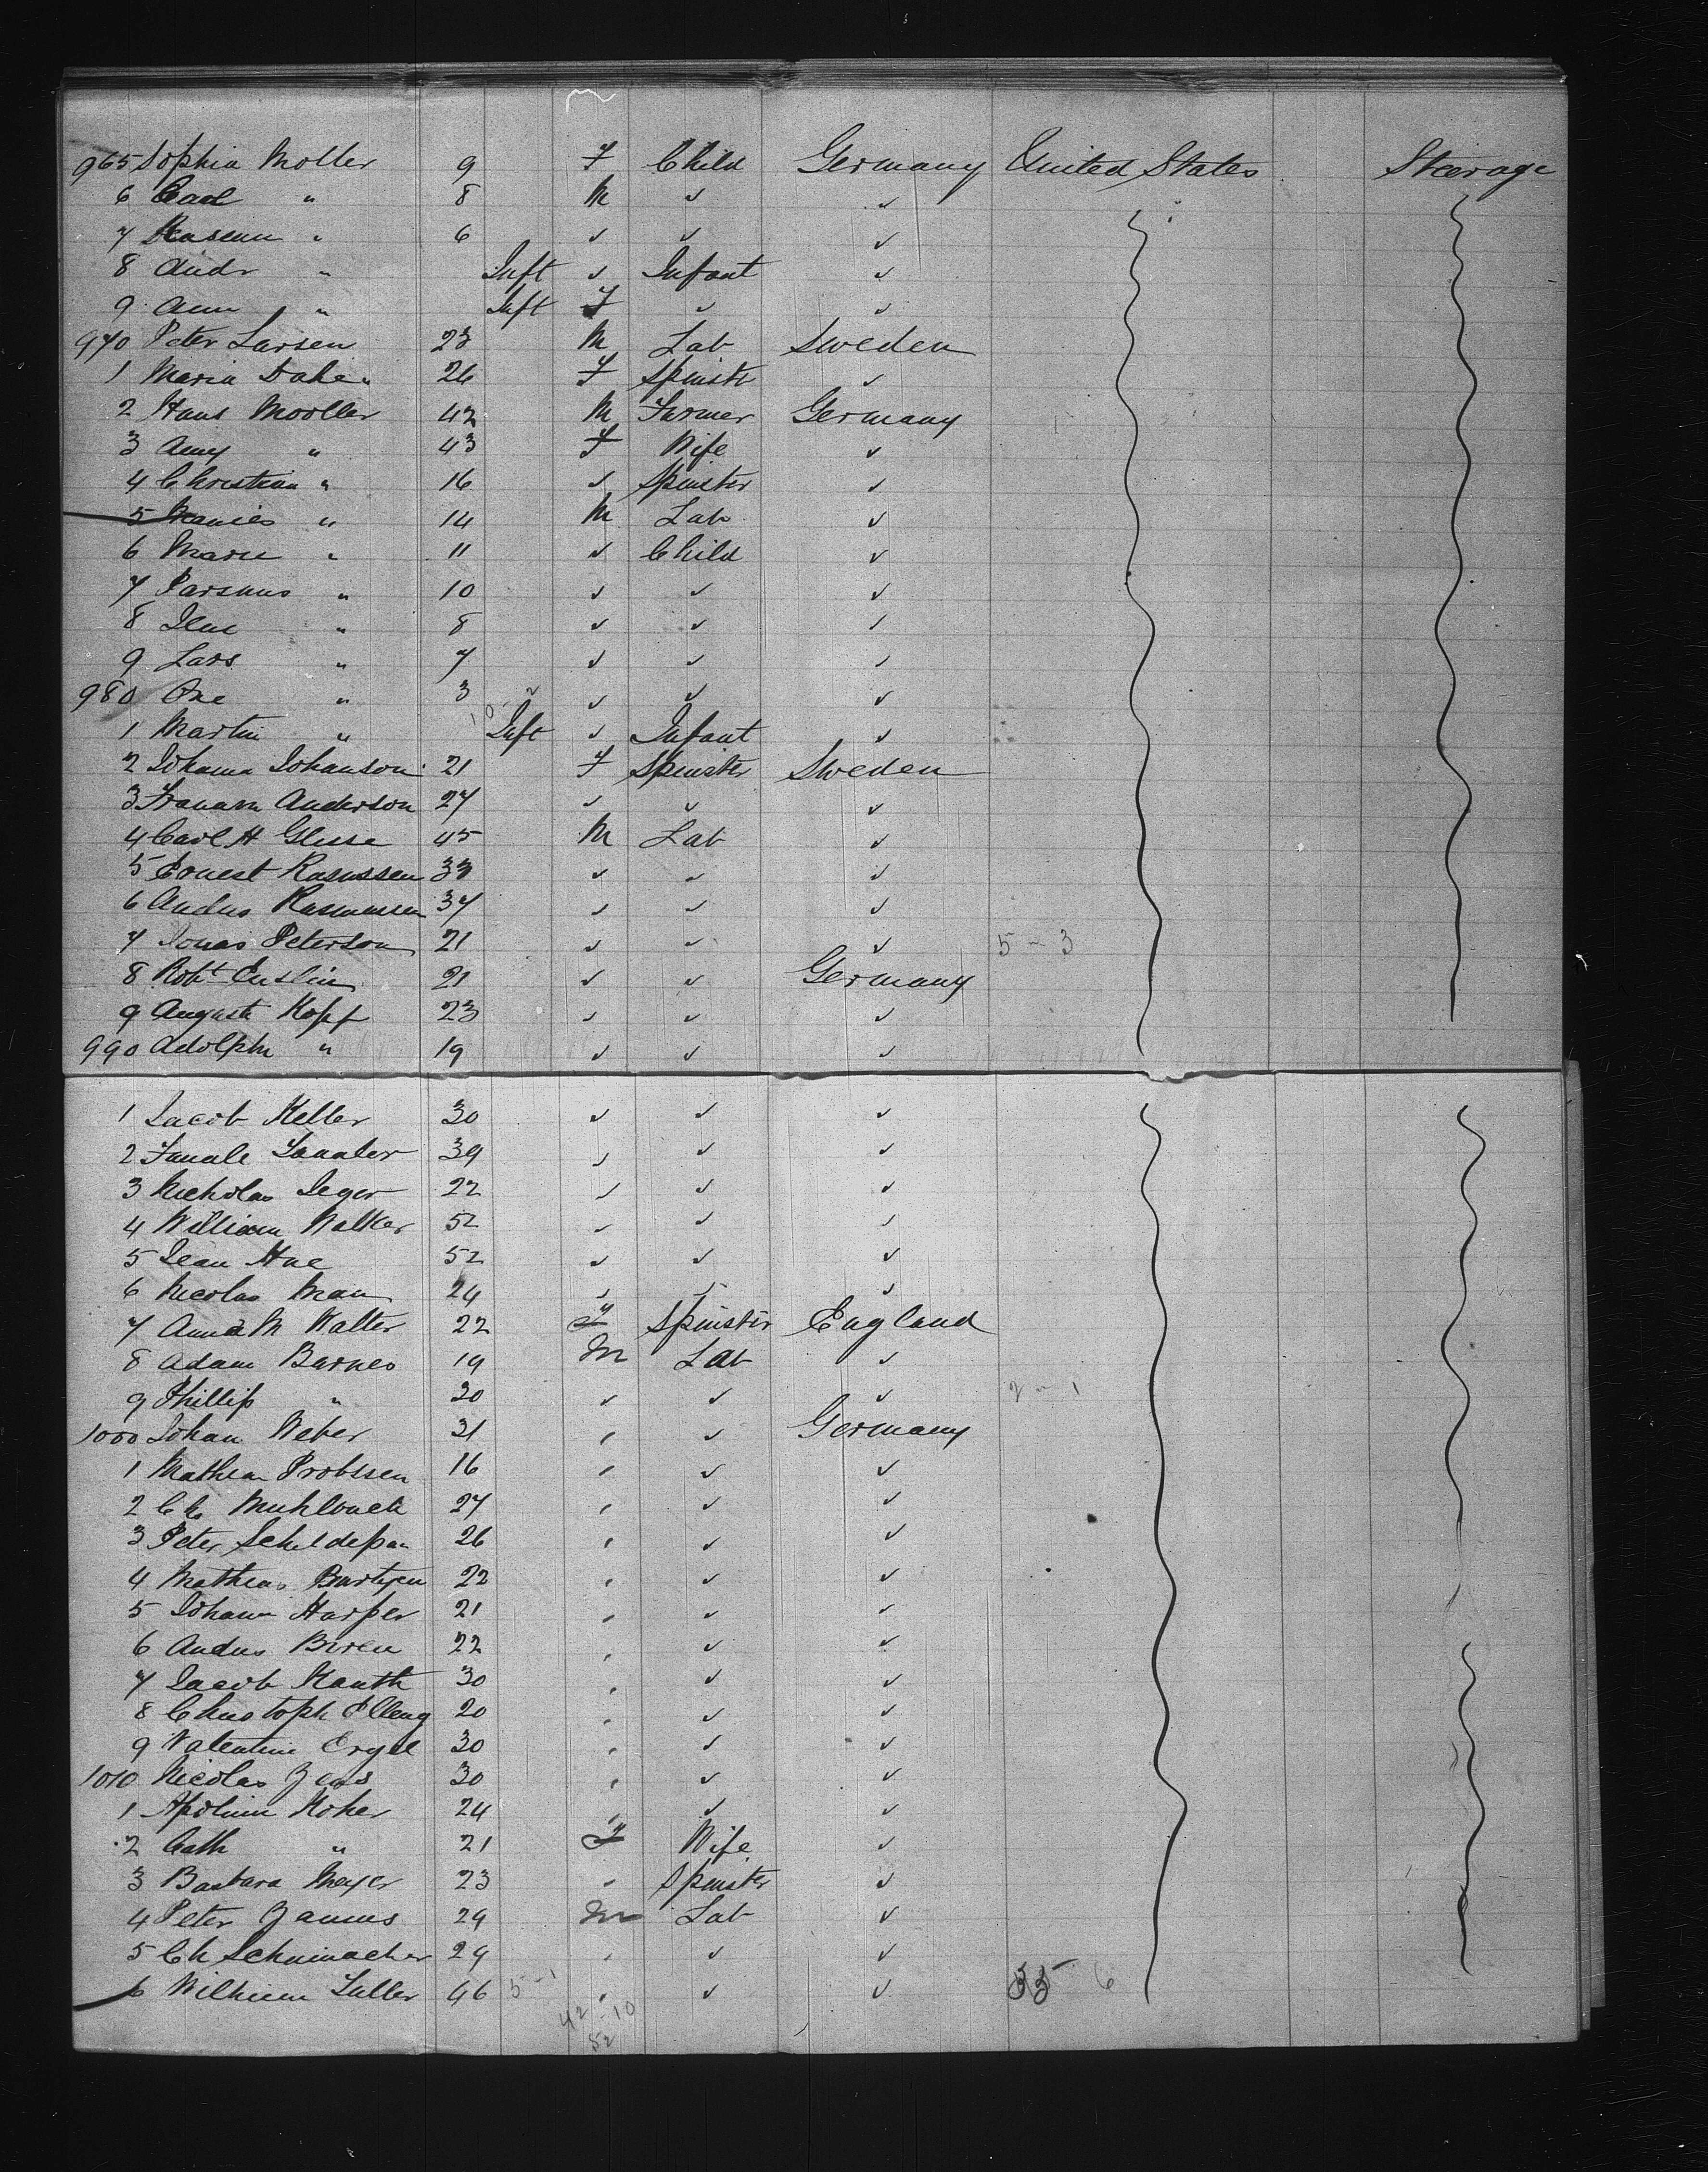 965 Sophia Moller 9 F Child Germany United States Steerage
6 Carl " 8 M ✓ ✓
7 " 6 ✓ ✓ ✓
8 Andr " Inft ✓ Infant ✓
9 Ann " Inft F ✓ ✓
970 Peter Larsen 23 M Lab Sweden
1 Maria Dahe " 26 F Spinstr ✓
2 Hans Mooller 42 M Farmer Germany
3 Amy " 43 F Wife ✓
4 Christian " 16 ✓ Spinster ✓
5 " 14 M Lab ✓
6 Marie " 11 ✓ Child ✓
7 Parsmus " 10 ✓ ✓ ✓
8 " 8 ✓ ✓ ✓
9 Lars " 7 ✓ ✓ ✓
980 One " 3 ✓ ✓ ✓
1 Martin " Inft ✓ Infant ✓
2 Johanna Johanson 21 F Spinster Sweden
3 Anderson 27 ✓ ✓ ✓
4 Carl H Glesse 45 M Lab ✓
5 Ernest Rasussen 33 ✓ ✓ ✓
6 Andus Rasmussen 37 ✓ ✓ ✓
7 Jonas Peterson 21 ✓ ✓ ✓ 5 - 3
8 Robt Enslin 21 ✓ ✓ Germany
9 August Kopf 23 ✓ ✓ ✓
990 Adolph " 19 ✓ ✓ ✓
1 Jacob Keller 30 ✓ ✓ ✓
2 39 ✓ ✓ ✓
3 Nicholas Jeger 22 ✓ ✓ ✓
4 William Walker 52 ✓ ✓ ✓
5 Jean Hue 52 ✓ ✓ ✓
6 Nicolas Man 24 ✓ ✓ ✓
7 Anna M Walter 22 F Spinster England
8 Adam Barnes 19 M Lab ✓
9 Phillip " 20 ✓ ✓ ✓ 2 - 1
1000 Johan Weber 31 ✓ ✓ Germany
1 Mathew Probssen 16 ✓ ✓ ✓
2 27 ✓ ✓ ✓
3 Peter 26 ✓ ✓ ✓
4 Mathias Bartzen 22 ✓ ✓ ✓
5 Johann Harper 21 ✓ ✓ ✓
6 Andus Biren 22 ✓ ✓ ✓
7 Jacob Kauth 30 ✓ ✓ ✓
8 Christoph Elleng 20 ✓ ✓ ✓
9 Valentine Engel 30 ✓ ✓ ✓
1010 Nicolas Zens 30 ✓ ✓ ✓
1 Koher 24 ✓ ✓ ✓
2 Cath " 21 F Wife ✓
3 Barbara Meyer 23 ✓ Spinster ✓
4 Peter 29 M Lab ✓
5 Ch Schumacher 29 ✓ ✓ ✓
6 Wilhiem Luller 46 5-1 ✓ ✓ ✓ 35 6
42-10
52